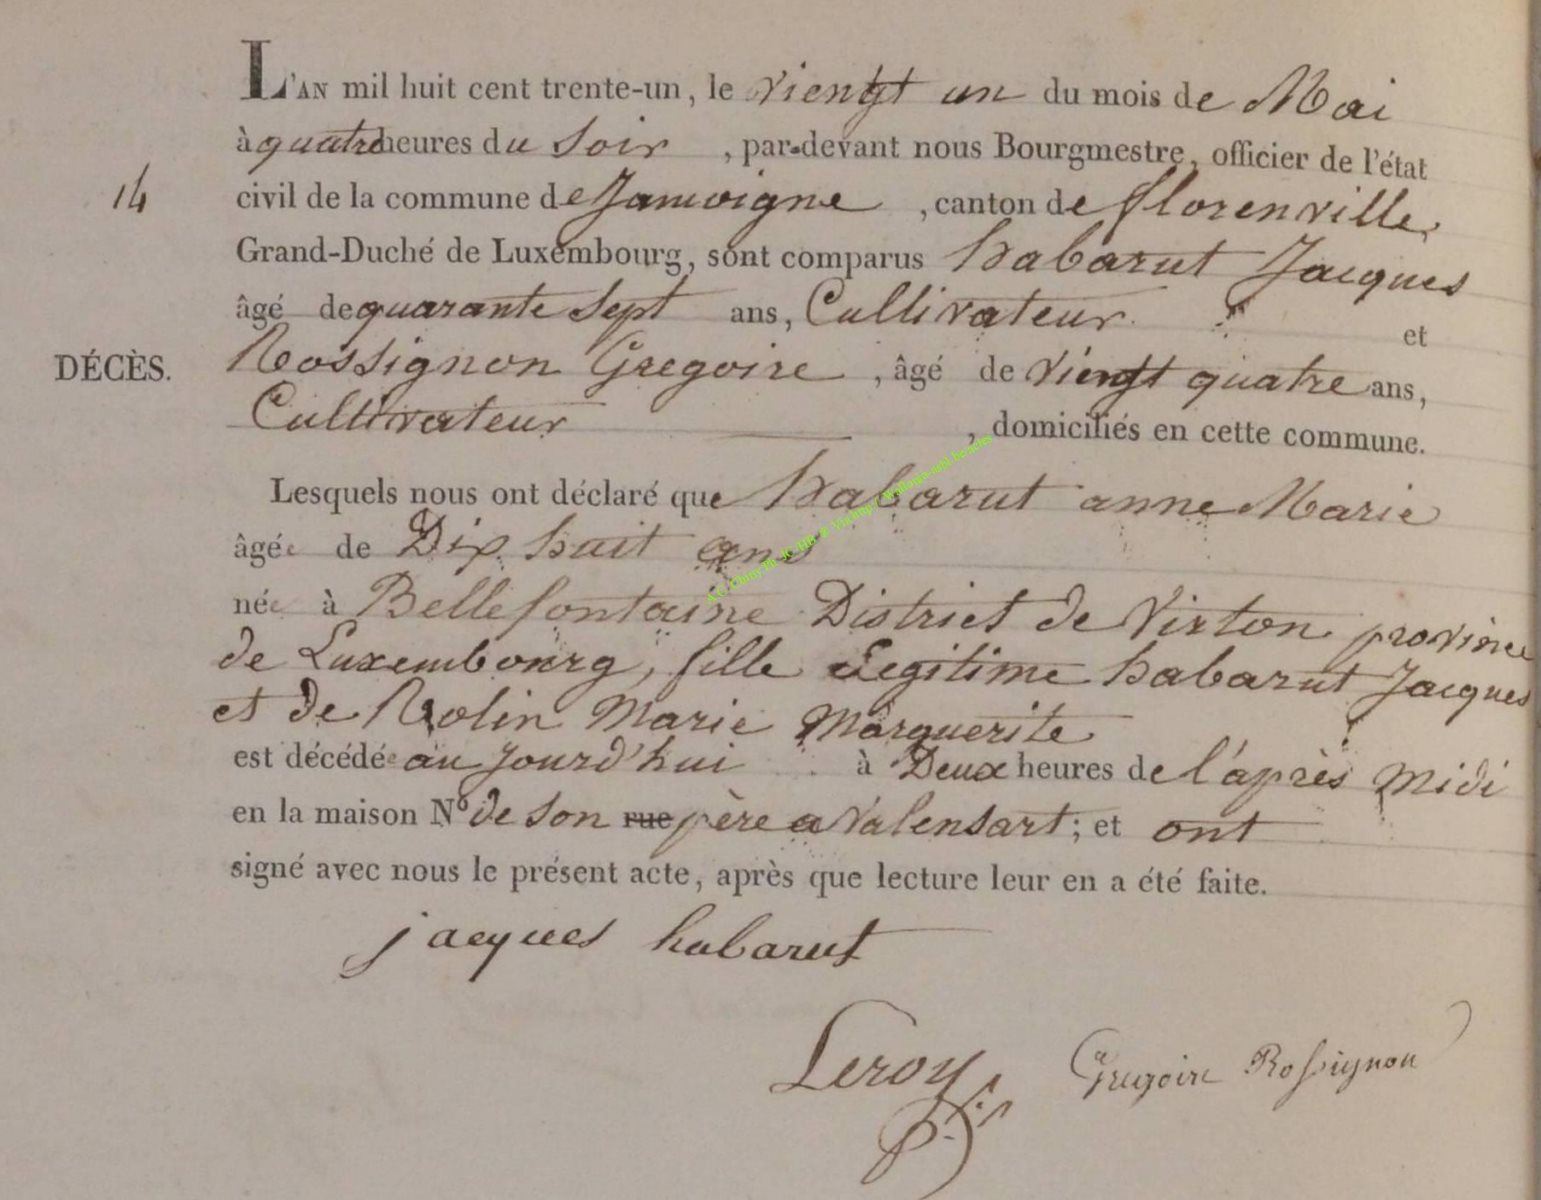 L'AN mil huit cent trente-un, le viengt un du mois de Mai
à quatre heures du Soir , par-devant nous Bourgmestre, officier de l'état
14 civil de la commune de Jamoigne , canton de florenville,
Grand-Duché de Luxembourg, sont comparus habarut Jacques
âgé de quarante Sept ans, Cultivateur et
DÉCÈS. Rossignon Gregoire , âgé de viengt quatre ans,
Cultivateur , domiciliés en cette commune.
Lesquels nous ont déclaré que habarut anne Marie
âgée de Dix huit ans
née à Bellefontaine District de Virton province
de Luxembourg, fille Legitime habarut Jacques
et de Rolin Marie Marguerite
est décédée au jourd'hui à Deux heures de l'après Midi
en la maison N° de Son rue père a Valensart; et ont
signé avec nous le présent acte, après que lecture leur en a été faite.
jacques habarut
Leroy Gregoire Rossignon